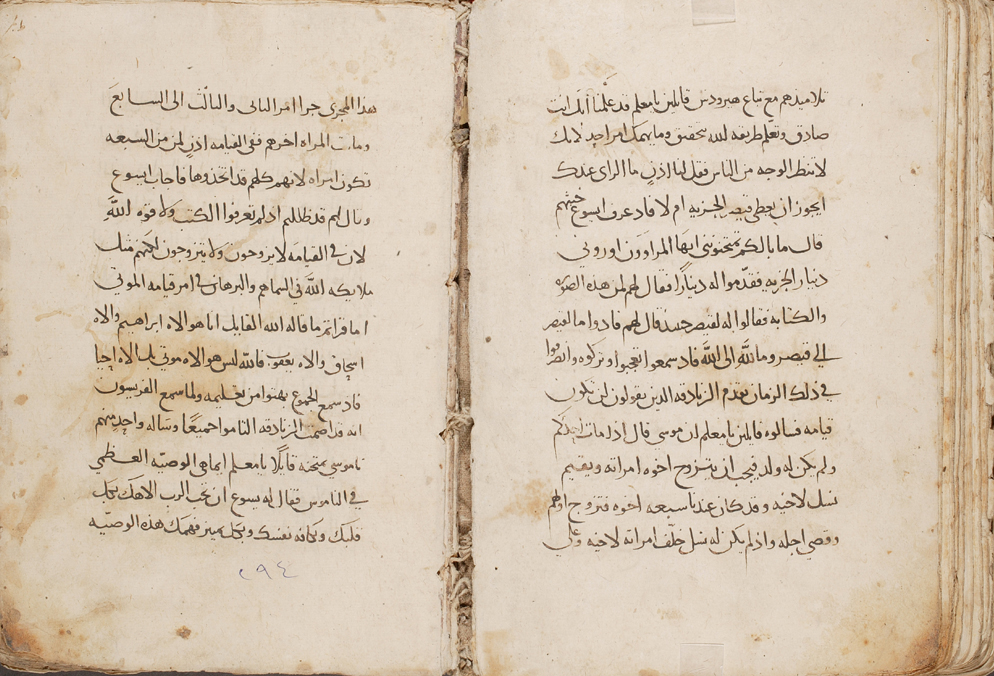 تلاميذهم مع تباع هيرودس قايلين يا معلم قد علمنا انك انت
صادق وتعلم طريقه لله بتحقيق وما يهمك امر احد لانك
لا تنظر الوجه من الناس فقل لنا اذن ما الراى عندك
ايجوز ان يعطى قيصر الجزيه ام لا فاذ عرف ايسوع خبثهم
قال ما بالكم تمتحنونى ايها المراوون اورونى
دينار الجزيه فقدموا له دينارًا فقال لهم لمن هذه الصوره
والكتابه فقالوا له لقيصر حينئذ قال لهم فادوا ما لقيصر
الى قيصر وما لله الى الله فاذ سمعوا تعجبوا وتركوه وانصرفوا
فى ذلك الزمان تقدم الزنادقه الذين يقولون لن تكون
قيامه فسالوه قايلين يا معلم ان موسى قال اذا مات احدكم
ولم يكن له ولد فيجب ان يتزوج اخوه امراته ويقيم
نسل لاخيه وقد كان عندنا سبعه اخوه فتزوج اولهم
وقضى اجله واذ لم يكن له نسل خلّف امراته لاخيه وعلى
هذا المجرى جرا امر الثانى والثالث الى السابع
وماتت المراه اخرهم ففى القيامه اذن لمن من السبعه
تكون امراه لانهم كلهم قد اتخذوها فاجاب ايسوع
وقال لهم قد ظللتم اذ لم تعرفوا الكتب ولا قوه الله
لان فى القيامه لا يزوجون ولا يتزوجون لكنهم مثل
ملايكه الله فى السما هم والبرهان فى امر قيامه الموتى
اما قراتم ما قاله الله القايل انا هو الاه ابراهيم والاه
اسحاق والاه يعقوب فالله ليس هو الاه موتى بل الاه احيا
فاذ سمع الجموع بهتوا من تعليمه ولما سمع الفريسون
انه قد اصمت الزنادقه التاموا جميعًا وساله واحد منهم
ناموسى يمتحنه قايلًا يا معلم ايما هى الوصيه العظمى
فى الناموس فقال له يسوع ان تحب الرب الاهك بكل
قلبك وبكافه نفسك وبكل تمييز فهمك هذه الوصيه
٢٩٤